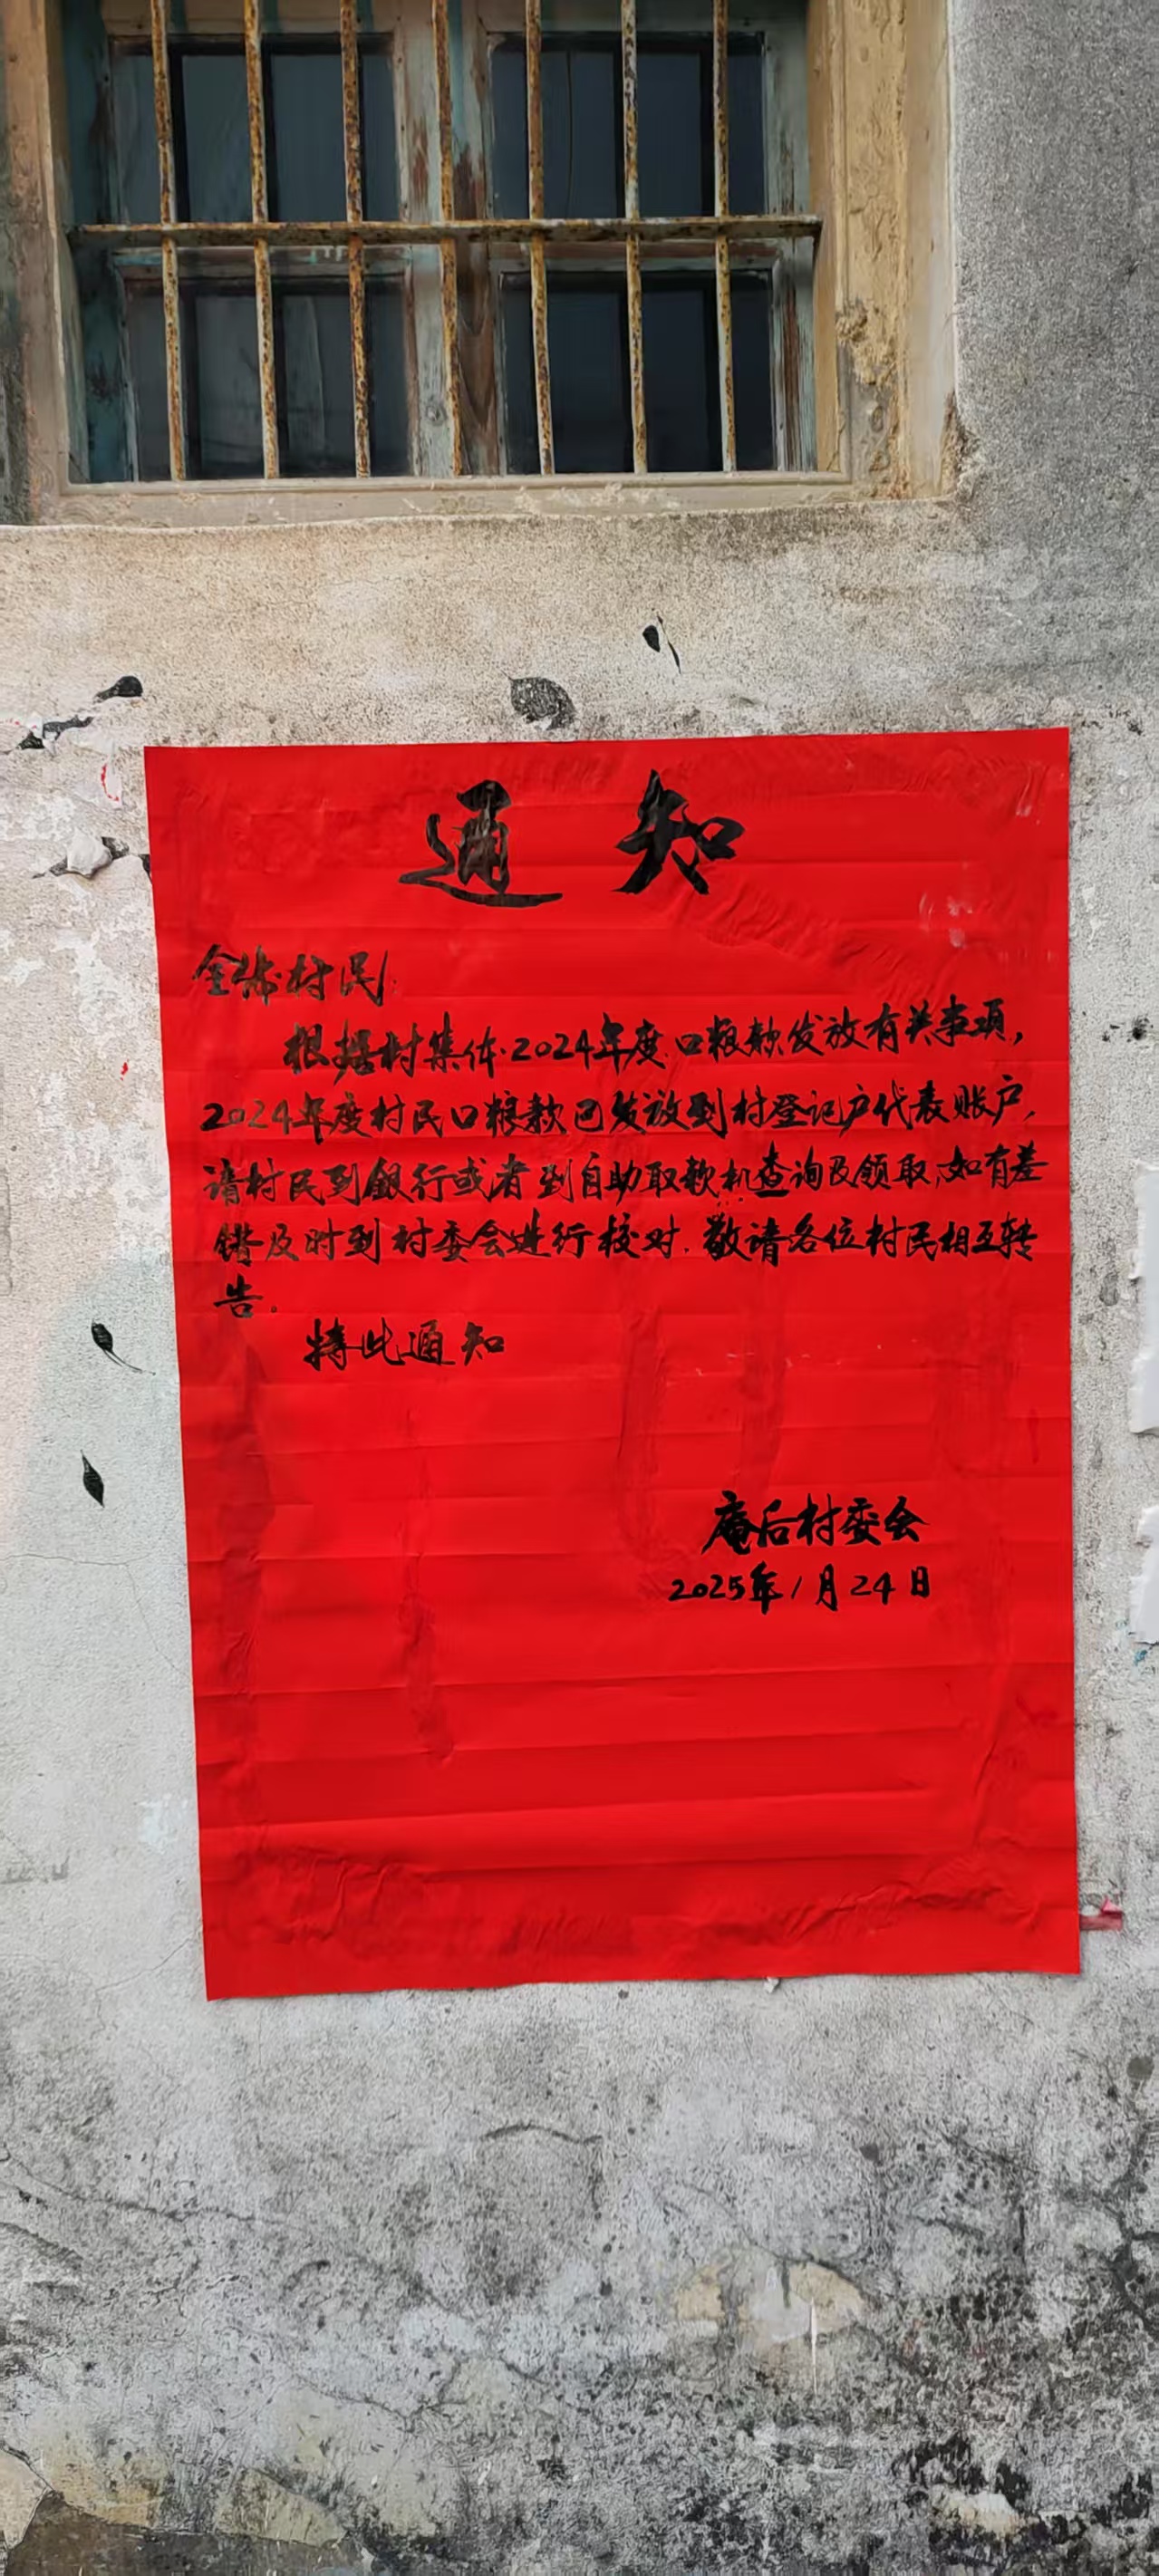 通知
全体村民:
根据村集体2024年度口粮款发放有关事项,
2024年度村民口粮款已发放到村登记户代表账户,
请村民到銀行或者到自助取款机查询及领取,如有差
错及时到村委会进行校对.敬请各位村民相互转
告。
特此通知
庵后村委会
2025年1月24日